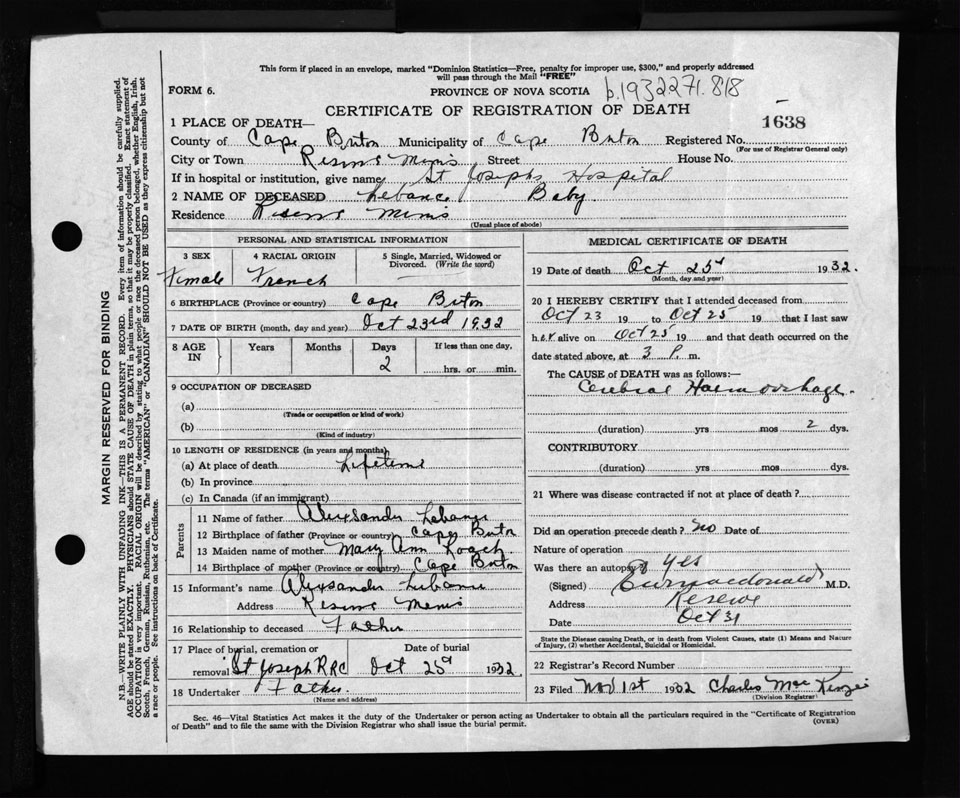 This form if placed in an envelope, marked "Dominion Statistics—Free, penalty for improper use, $300," and properly addressed
will pass through the Mail "FREE"
FORM 6.
PROVINCE OF NOVA SCOTIA
b.1932271.818
CERTIFICATE OF REGISTRATION OF DEATH
1638
1 PLACE OF DEATH—
County of Cape Breton Municipality of Cape Breton Registered No.
(For use of Registrar General only)
City or Town Reserve Mines Street House No.
If in hospital or institution, give name St Josephs Hospital
2 NAME OF DECEASED Lebanc Baby
Residence Reserve Mines
(Usual place of abode)
PERSONAL AND STATISTICAL INFORMATION
3 SEX 4 RACIAL ORIGIN 5 Single, Married, Widowed or
Divorced. (Write the word)
Female French
6 BIRTHPLACE (Province or country) Cape Breton
7 DATE OF BIRTH (month, day and year) Oct 23rd 1932
8 AGE IN Years Months Days If less than one day,
2 hrs. or min.
9 OCCUPATION OF DECEASED
(a)
(Trade or occupation or kind of work)
(b)
(Kind of industry)
10 LENGTH OF RESIDENCE (in years and months)
(a) At place of death Lifetime
(b) In province
(c) In Canada (if an immigrant)
Parents
11 Name of father Alexsander Lebanc
12 Birthplace of father (Province or country) Cape Breton
13 Maiden name of mother Mary Ann Roach
14 Birthplace of mother (Province or country) Cape Breton
15 Informant's name Alexsander Lebanc
Address Reserve Mines
16 Relationship to deceased Father
17 Place of burial, cremation or Date of burial
removal St Joseph R R C Oct 25d 1932
18 Undertaker Father
(Name and address)
MEDICAL CERTIFICATE OF DEATH
19 Date of death Oct 25d 1932.
(Month, day and year)
20 I HEREBY CERTIFY that I attended deceased from
Oct 23 19 to Oct 25 19 that I last saw
her alive on Oct 25 19 and that death occurred on the
date stated above, at 3 P. m.
The CAUSE of DEATH was as follows:—
Cerebral Haemorrhage.
(duration) yrs mos 2 dys.
CONTRIBUTORY
(duration) yrs mos dys.
21 Where was disease contracted if not at place of death?
Did an operation precede death? No Date of
Nature of operation
Was there an autopsy? Yes
(Signed) Macdonald M.D.
Address Reserve
Date Oct 31
State the Disease causing Death, or in death from Violent Causes, state (1) Means and Nature
of Injury, (2) whether Accidental, Suicidal or Homicidal.
22 Registrar's Record Number
23 Filed Nov 1st 1932 Charles Mac Kenzie
(Division Registrar)
Sec. 46—Vital Statistics Act makes it the duty of the Undertaker or person acting as Undertaker to obtain all the particulars required in the "Certificate of Registration
of Death" and to file the same with the Division Registrar who shall issue the burial permit. (OVER)
MARGIN RESERVED FOR BINDING
N.B.—WRITE PLAINLY WITH UNFADING INK—THIS IS A PERMANENT RECORD. Every item of information should be carefully supplied.
AGE should be stated EXACTLY. PHYSICIANS should STATE CAUSE OF DEATH in plain terms, so that it may be properly classified. Exact statement of
OCCUPATION is very important. RACIAL ORIGIN will be described by stating to what people or race the deceased person belonged, whether English, Irish,
Scotch, French, German, Russian, Ruthenian, etc. The terms "AMERICAN" or "CANADIAN" SHOULD NOT BE USED as they express citizenship but not
a race or people. See instructions on back of Certificate.